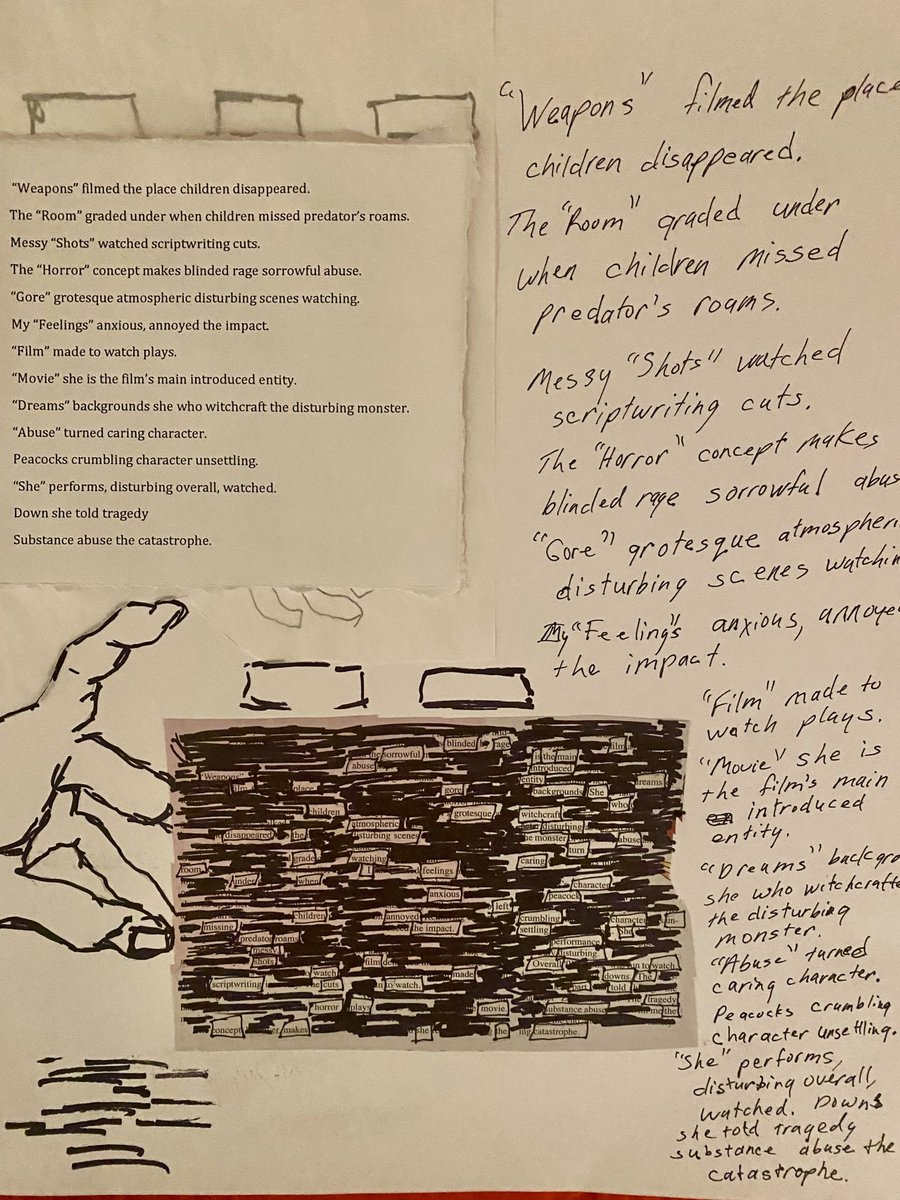 “Weapons” filmed the place children disappeared.
The “Room” graded under when children missed predator’s roams.
Messy “Shots” watched scriptwriting cuts.
The “Horror” concept makes blinded rage sorrowful abuse.
“Gore” grotesque atmospheric disturbing scenes watching.
My “Feelings” anxious, annoyed the impact.
“Film” made to watch plays.
“Movie” she is the film’s main introduced entity.
“Dreams” backgrounds she who witchcraft the disturbing monster.
“Abuse” turned caring character.
Peacocks crumbling character unsettling.
“She” performs, disturbing overall, watched.
Down she told tragedy
Substance abuse the catastrophe.
“Weapons” filmed the place
children disappeared.
The “Room” graded under
when children missed
predator's roams.
Messy “Shots” watched
scriptwriting cuts.
The “Horror” concept makes
blinded rage sorrowful abus
“Gore” grotesque atmospheri
disturbing scenes watchin
My “Feeling's anxious, annoye
the impact.
“Film” made to
watch plays.
“Movie” she is
the film's main
introduced
entity.
“Dreams” backgro
she who witchcrafte
the disturbing
monster.
“Abuse” turned
caring character.
Peacocks crumbling
character unsettling.
“She” performs,
disturbing overall,
watched. Downs
she told tragedy
substance abuse the
catastrophe.
blinded rage film
sorrowful is the main
abuse introduced
“Weapons” entity dreams
film place gore backgrounds She
children grotesque witchcraft who
atmospheric disturbing
disappeared the disturbing scenes the monster abuse
grade watching caring turn
room I feelings
under when character
anxious peacock
children left
missing annoyed crumbling character in-
the impact. settling She
predator roams performance
messy disturbing.
shots film Overall to watch.
watch made downs. The
scriptwriting cuts to watch. part told
horror plays movie substance abuse tragedy
me the
concept makes she the catastrophe.